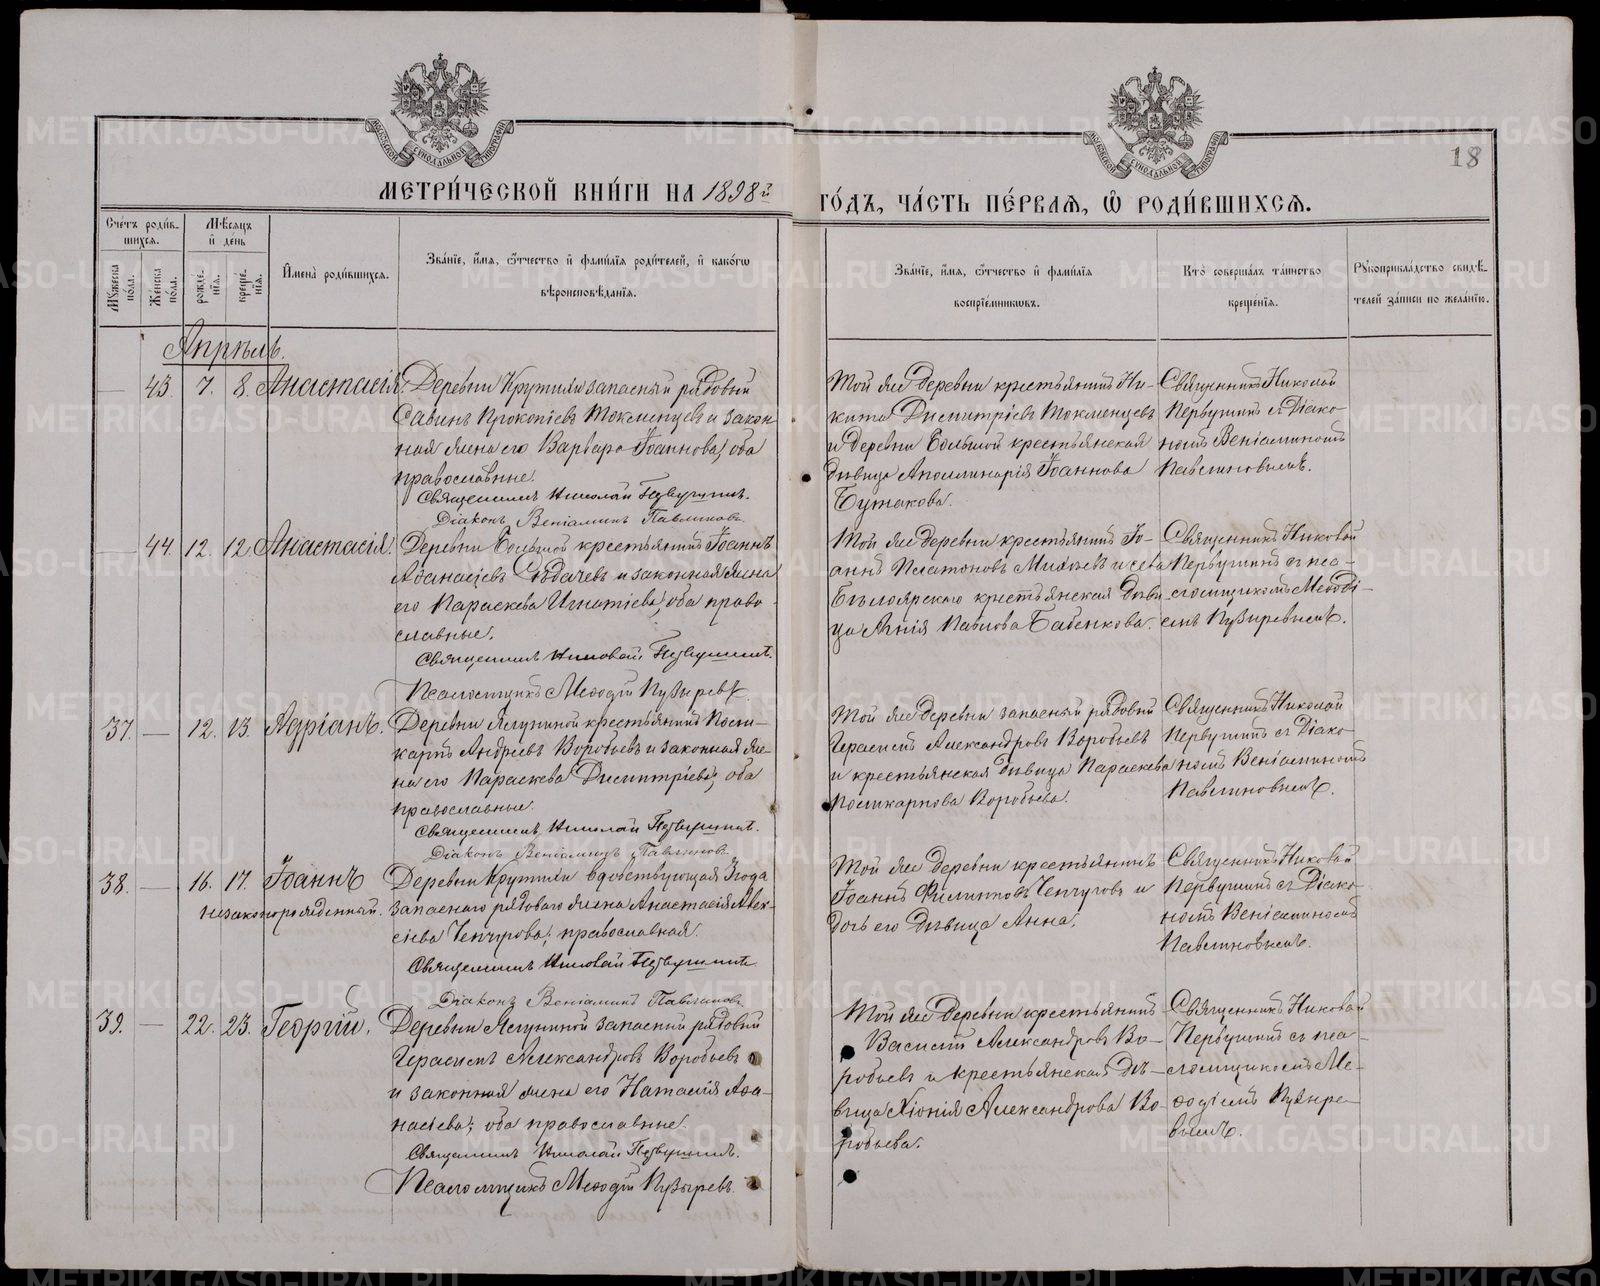 18
МЕТРИ́ЧЕСКОЙ КНИ́ГИ НА 1898й
ГО́ДЪ, ЧА́СТЬ ПЕ́РВАѦ, Ѡ РОДИ́ВШИХСѦ.
Сче́тъ роди́в-
шихсѧ.
Мѹ́жеска по́ла.
Же́нска по́ла.
Мѣ́сѧцъ
и҆ день
рожде́-
нїѧ.
креще́-
нїѧ.
И҆мена̀ роди́вшихсѧ.
Зва́нїе, и҆́мѧ, ѻ҆́тчество и҆ фами́лїѧ роди́телей, и҆ како́гѡ
вѣроисповѣ́данїѧ.
Зва́нїе, и҆́мѧ, ѻ҆́тчество и҆ фами́лїѧ
воспрїе́мниковъ.
Кто̀ соверша́лъ та́инство
креще́нїѧ.
Рꙋкоприкла́дство свидѣ́-
телей за́писи по жела́нїю.
Апрѣль.
43. 7. 8. Анастасія. Деревни Крутихи запасный рядовой
Савинъ Прокопіевъ Токменцевъ и закон
ная жена его Варвара Іоаннова, оба
православные.
Священникъ Николай Первушинъ.
Діаконъ Веніаминъ Павлиновъ
Той же деревни крестьянинъ Ни-
кита Димитріевъ Токменцевъ
и деревни Большой крестьянская
дѣвица Аполлинарія Іоаннова
Бутакова.
Священникъ Николай
Первушинъ съ Діако-
номъ Веніаминомъ
Павлиновымъ.
44. 12. 12 Анастасія. Деревни Большой крестьянинъ Іоаннъ
Аѳанасіевъ и законная жена
его Параскева Игнатіева, оба право-
славные.
Священникъ Николай Первушинъ.
Псаломщикъ Меѳодій Пузыревъ.
Той же деревни крестьянинъ Іо-
аннъ Платоновъ и села
Бѣлоярскаго крестьянская дѣви-
ца Агнія Павлова Бабенкова.
Священникъ Николай
Первушинъ съ пса-
ломщикомъ Меѳоді-
емъ Пузыревымъ.
37. — 12. 13. Адріанъ. Деревни Ялуниной крестьянинъ Поли-
карпъ Андреевъ Воробьевъ и законная же-
на его Параскева Димитріева, оба
православные.
Священникъ Николай Первушинъ.
Діаконъ Веніаминъ Павлиновъ
Той же деревни запасный рядовой
Герасимъ Александровъ Воробьевъ
и крестьянская дѣвица Параскева
Поликарпова Воробьева.
Священникъ Николай
Первушинъ съ Діако-
номъ Веніаминомъ
Павлиновымъ.
38. — 16. 17. Іоаннъ Деревни Крутихи вдовствующая 3 года
незаконорожденный. запаснаго рядоваго жена Анастасія Алек-
сіева Чепчугова, православная.
Священникъ Николай Первушинъ
Діаконъ Веніаминъ Павлиновъ
Той же деревни крестьянинъ
Іоаннъ Филипповъ Чепчуговъ и
дочь его дѣвица Анна.
Священникъ Николай
Первушинъ съ Діако-
номъ Веніаминомъ
Павлиновымъ.
39. — 22. 23. Георгій. Деревни Ялуниной запасный рядовой
Герасимъ Александровъ Воробьевъ
и законная жена его Наталія Аѳа-
насіева, оба православные.
Священникъ Николай Первушинъ.
Псаломщикъ Меѳодій Пузыревъ.
Той же деревни крестьянинъ
Василій Александровъ Во-
робьевъ и крестьянская дѣ-
вица Хіонія Александрова Во-
робьева.
Священникъ Николай
Первушинъ съ пса-
ломщикомъ Ме-
ѳодіемъ Пузыре-
вымъ.
METRIKI.GASO-URAL.RU